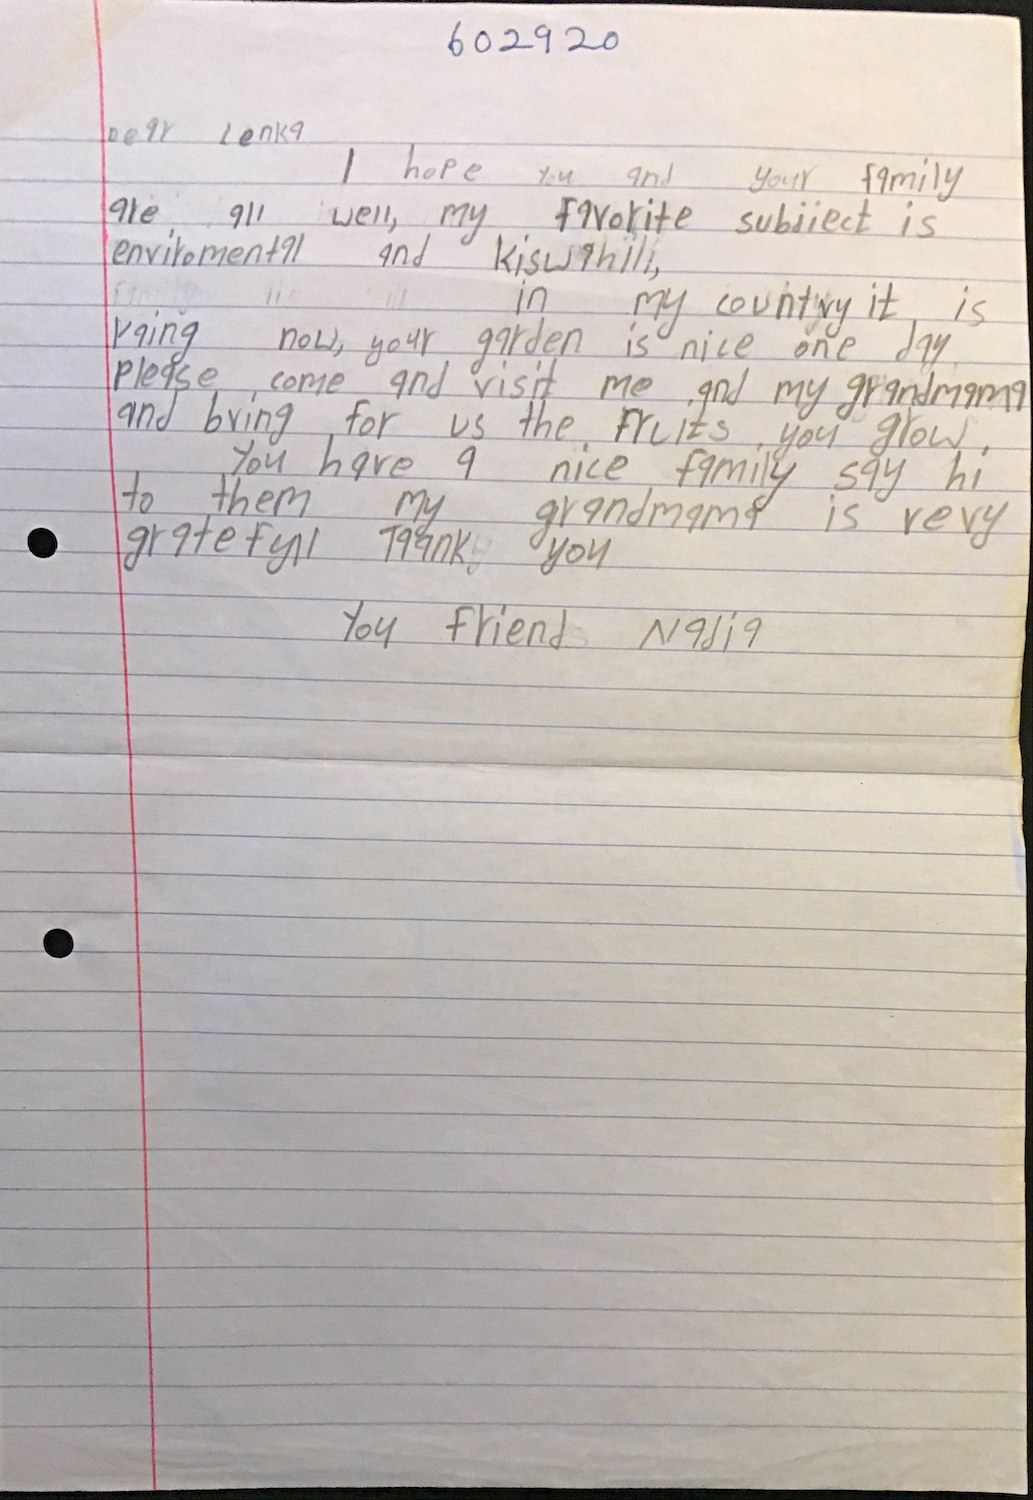 602920
Dear Lenka
I hope you and your family
are all well, my favorite subjiect is
enviromental and kiswahili,
in my country it is
raing now, your garden is nice one day
please come and visit me and my grandmama
and bring for us the fruits you glow.
You have a nice family say hi
to them my grandmama is revy
gratefull Taank you
You friend Nadia